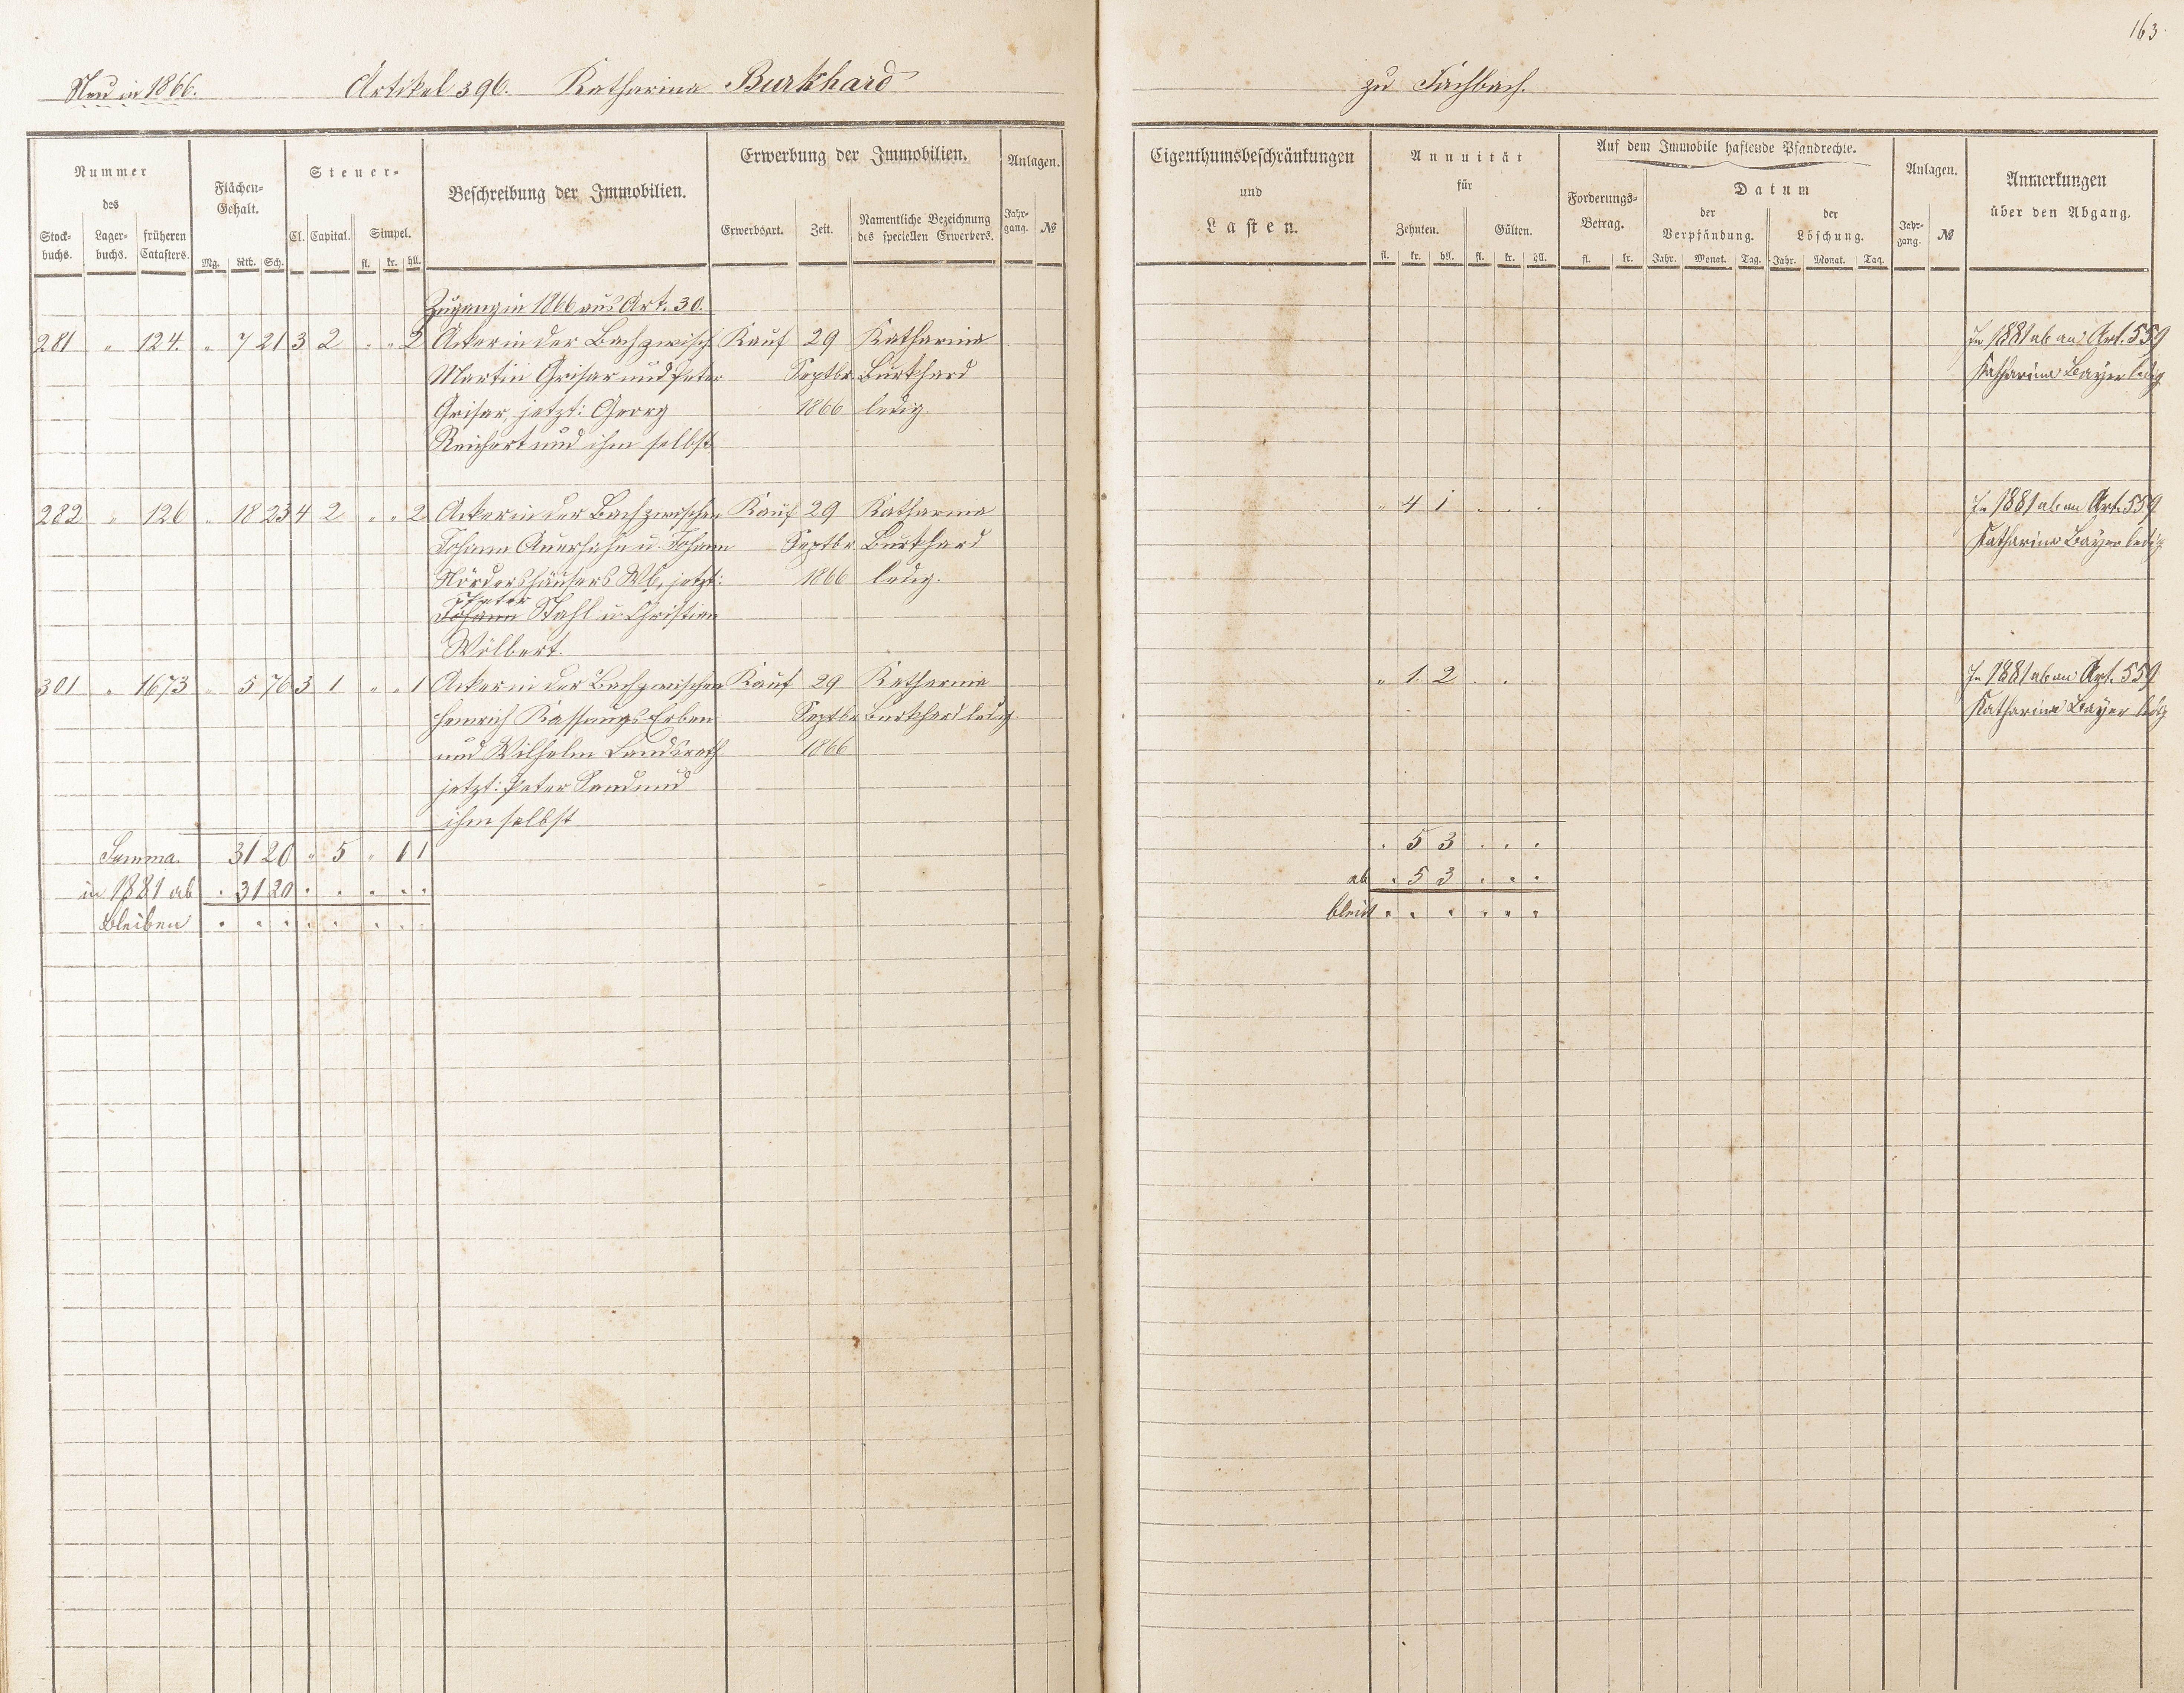 163.
Neu in 1866. Artikel 396. Katharina Burkhard zu Fachbach.
Nummer des
Stockbuchs. Lagerbuchs. früheren Catasters.
Flächen-Gehalt.
Mg. Rth. Sch.
Steuer-
Cl. Capital. Simpel.
fl. kr. hll.
Beschreibung der Immobilien.
Erwerbung der Immobilien.
Erwerbsart. Zeit. Namentliche Bezeichnung des speciellen Erwerbers.
Anlagen.
Jahrgang. №
Eigenthumsbeschränkungen
und
Lasten.
Annuität
für
Zehnten. Gülten.
fl. kr. hll. fl. kr. hll.
Auf dem Immobile haftende Pfandrechte.
Forderungs-Betrag.
fl. kr.
Datum
der Verpfändung. der Löschung.
Jahr. Monat. Tag. Jahr. Monat. Tag.
Anlagen.
Jahrgang. №
Anmerkungen
über den Abgang.
Zugang in 1866 aus Art. 30.
281 " 124. " 7 21 3 2 " " 2 Acker in der Bach zwisch Kauf 29 Katharina In 1881 ab an Art. 559
Martin Griser und Peter Septbr Burkhard Katharina Bayer ledig
Griser, jetzt: Georg 1866 ledig.
Reichert und ihm selbst
282 " 126 " 18 23 4 2 " " 2 Acker in der Bach zwischen Kauf 29 Katharina " 4 1 . . . In 1881 ab an Art. 559
Johann Auerhahn u. Johann Septbr Burkhard Katharina Bayer ledig
Nördershäusers Wb, jetzt: 1866 ledig.
Peter
Johann Stahl u Christian
Wölbert.
301 " 1673 " 5 76 3 1 " " 1 Acker in der Bach zwischen Kauf 29 Katharina " 1. 2 . . In 1881 ab an Art. 559
Heinrich Kassungs Erben Septbr Burkhard ledig. Katharina Bayer ledig
und Wilhelm Landsrath 1866
jetzt: Peter Sand und
ihm selbst
Summa. 31 20 " 5 " 1 1 . 5 3 . . .
in 1881 ab . 31 20 . . . . . ab . 5 3 . . .
Bleiben . . . . . . . . bleibt . . . . . .